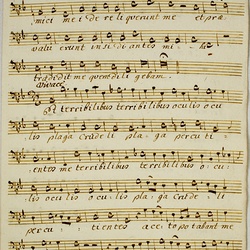 amici mei dereliquerunt me et præ
valuerunt insidiantes mihi
tradidit me quem diligebam.
Vivace
et terribilibus terribilibus oculis ocu
lis plaga crudeli plaga percuti
entes me terribilibus terribilibus ocu
lis oculis oculis plaga crudeli
percutientes aceto potabant me